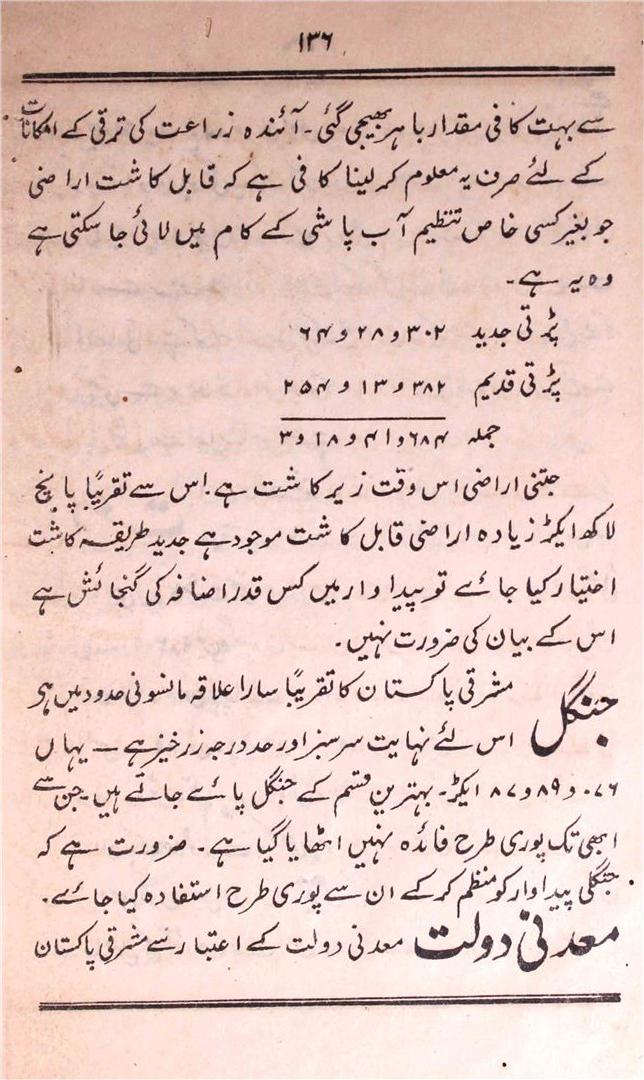 ۱۳۶
سے بہت کافی مقدار باہر بھیجی گئی۔ آئندہ زراعت کی ترقی کے امکانات
کے لئے صرف یہ معلوم کر لینا کافی ہے کہ قابل کاشت اراضی
جو بغیر کسی خاص تنظیم آب پاشی کے کام میں لائی جا سکتی ہے
وہ یہ ہے۔
پڑتی جدید ۳۰۲و۲۸و۶۴
پڑتی قدیم ۳۸۲و۱۳و۲۵۴
جملہ ۶۸۴و۴۱و۱۸و۳
جتنی اراضی اس وقت زیر کاشت ہے۔ اس سے تقریباً پانچ
لاکھ ایکڑ زیادہ اراضی قابل کاشت موجود ہے جدید طریقہ کاشت
اختیار کیا جائے تو پیداوار میں کس قدر اضافہ کی گنجائش ہے
اس کے بیان کی ضرورت نہیں۔
جنگل مشرقی پاکستان کا تقریباً سارا علاقہ مانسونی حدود میں ہے
اس لئے نہایت سرسبز اور حد درجہ زرخیز ہے — یہاں
۰۷۶و۸۹و۸۷ ایکڑ۔ بہترین قسم کے جنگل پائے جاتے ہیں۔ جن سے
ابھی تک پوری طرح فائدہ نہیں اٹھایا گیا ہے۔ ضرورت ہے کہ
جنگلی پیداوار کو منظم کر کے ان سے پوری طرح استفادہ کیا جائے۔
معدنی دولت معدنی دولت کے اعتبار سے مشرقی پاکستان